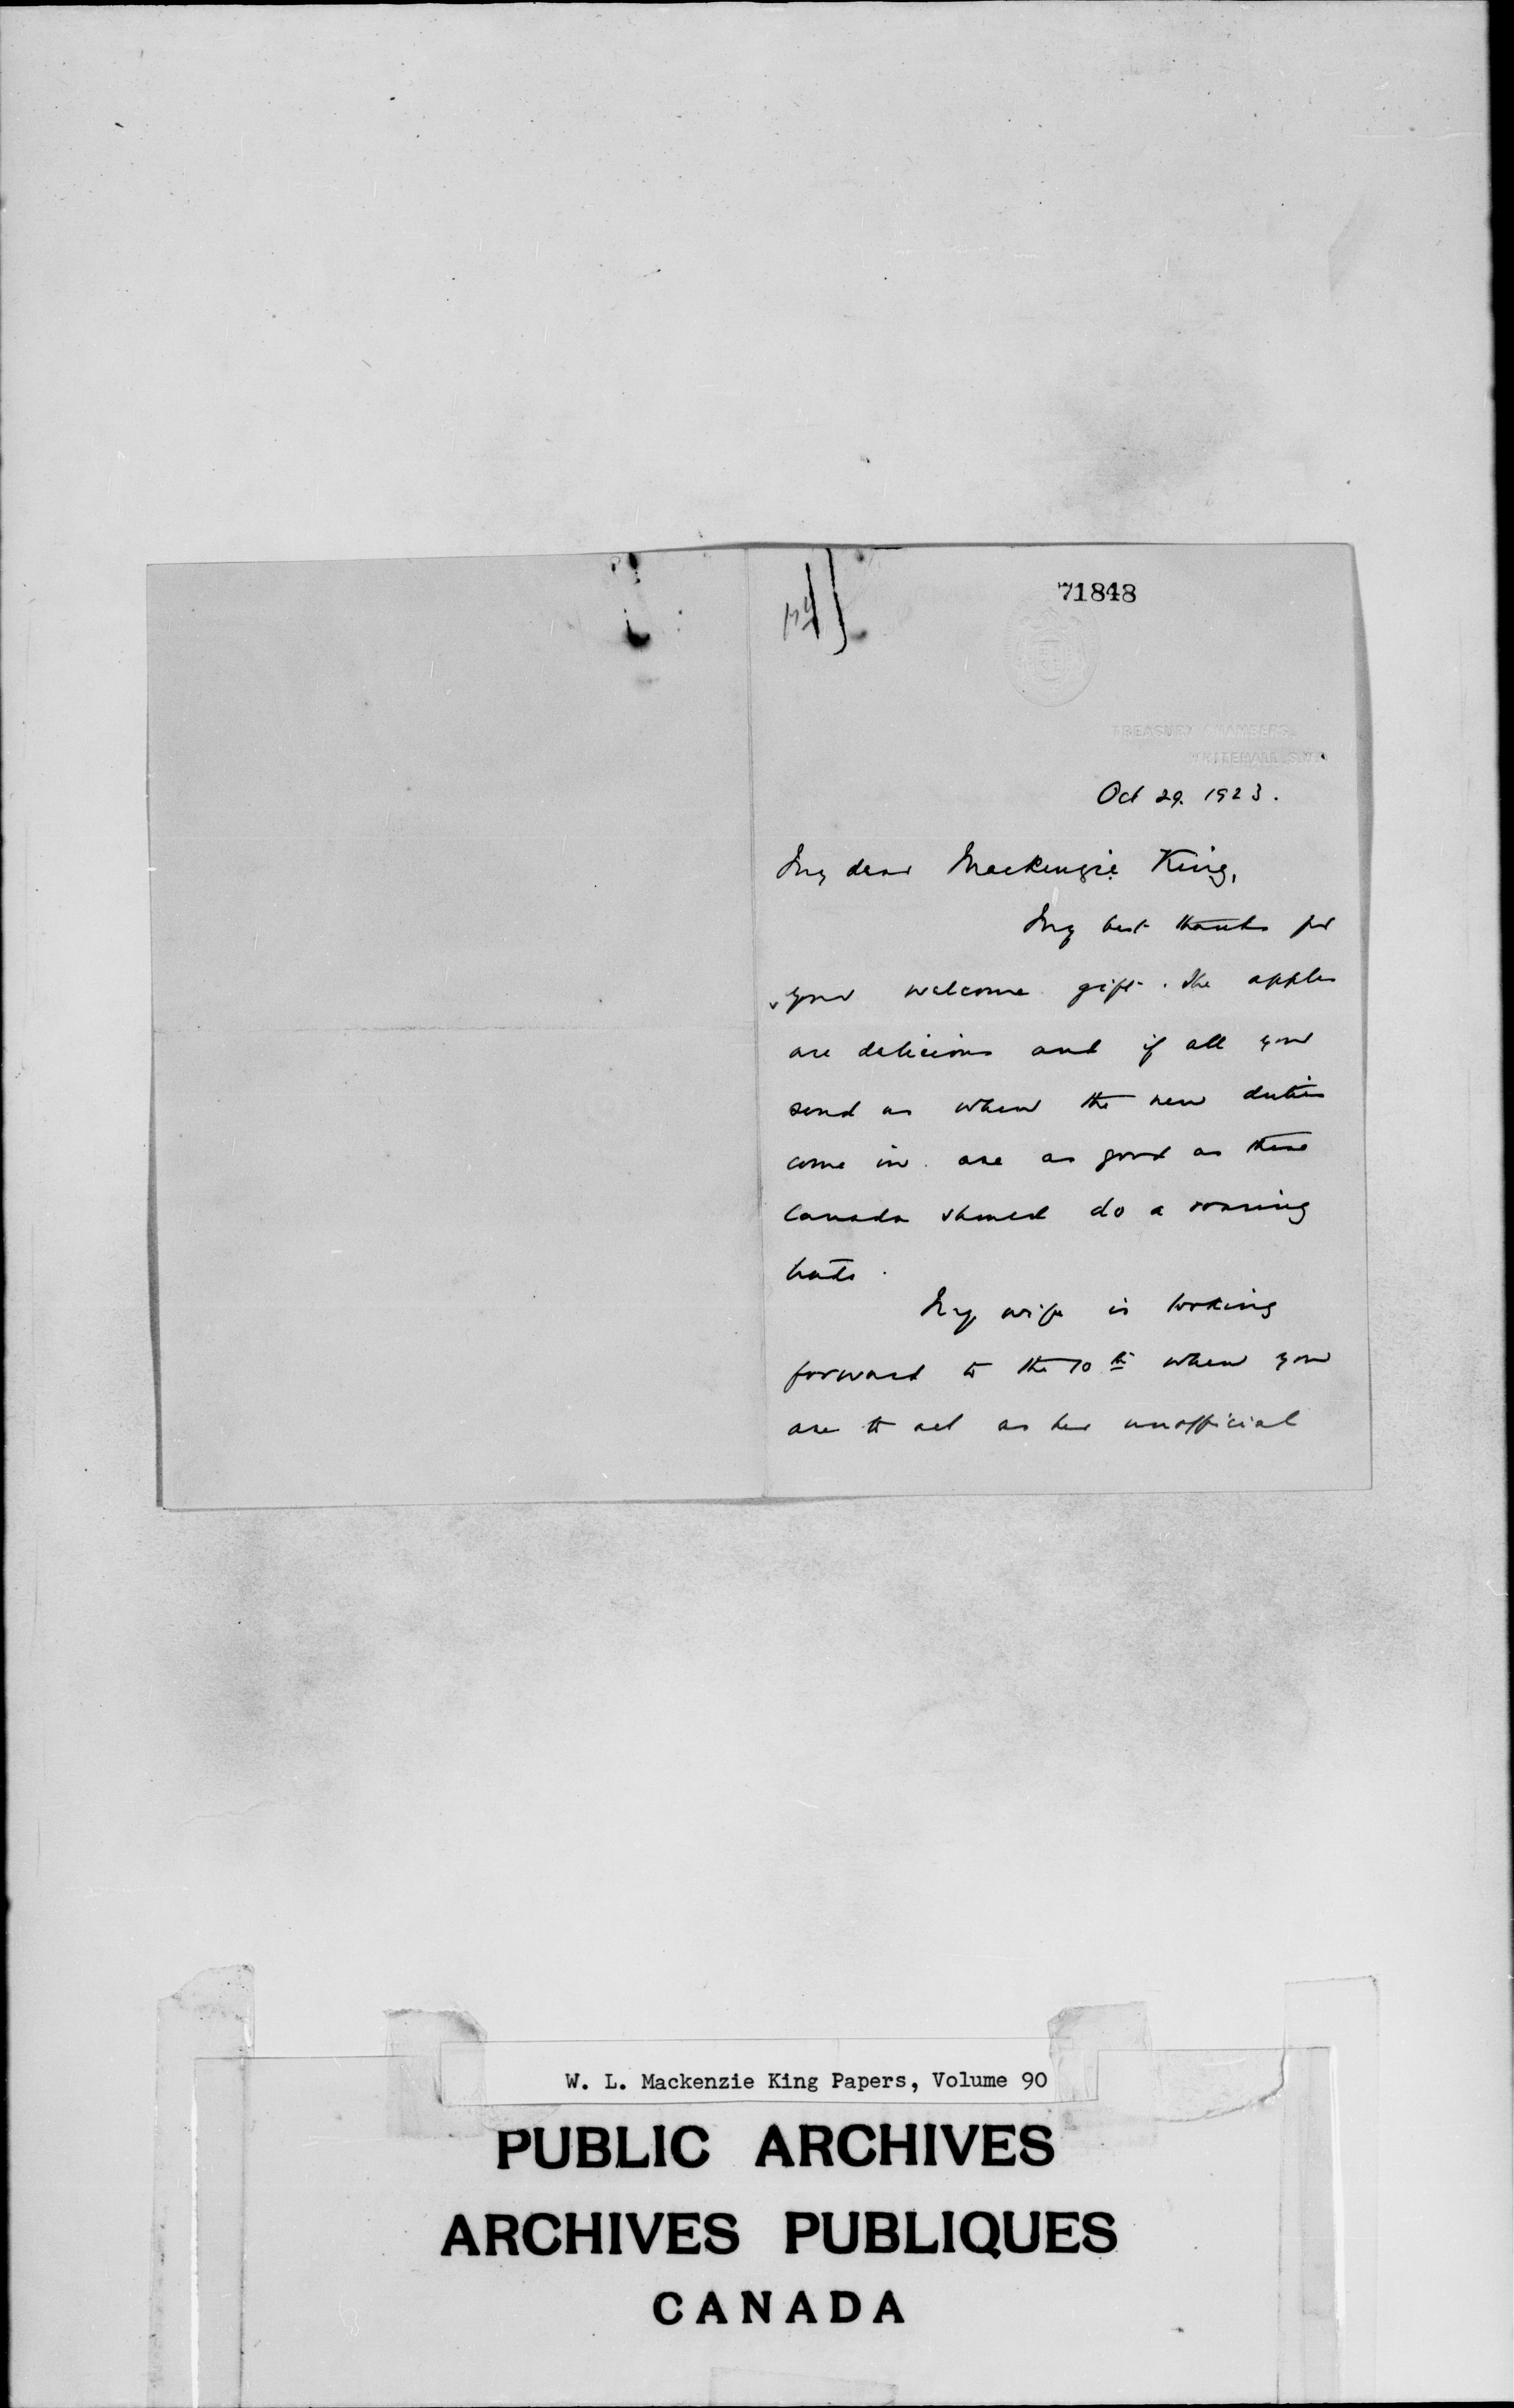 71848
TREASURY CHAMBERS,
WHITEHALL, S.W.
Oct 29. 1923.
My dear Mackenzie King,
My best thanks for
your welcome gift. The apples
are delicious and if all you
send us when the new duties
come in are as good as these
Canada should do a roaring
trade.
My wife is looking
forward to the 10th when you
are to act as her unofficial
W. L. Mackenzie King Papers, Volume 90
PUBLIC ARCHIVES
ARCHIVES PUBLIQUES
CANADA